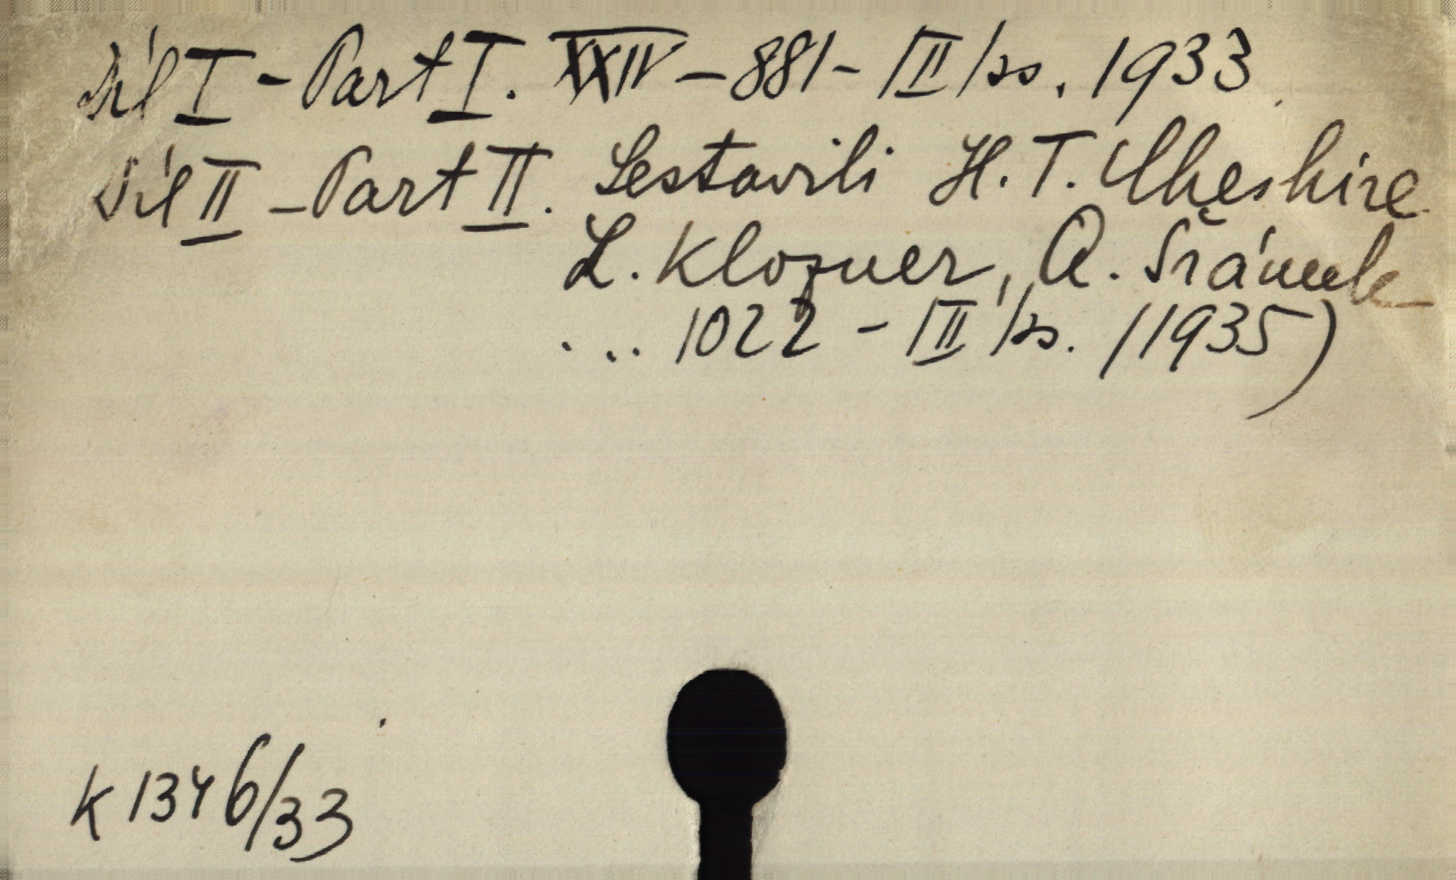 Díl I - Part I. XXIV - 881 - |II| ss. 1933.
Díl II - Part II. Sestavili H. T. Cheshire
L. Klozner, A. Šrámek
... 1022 - |II| ss. (1935)
K 1346/33